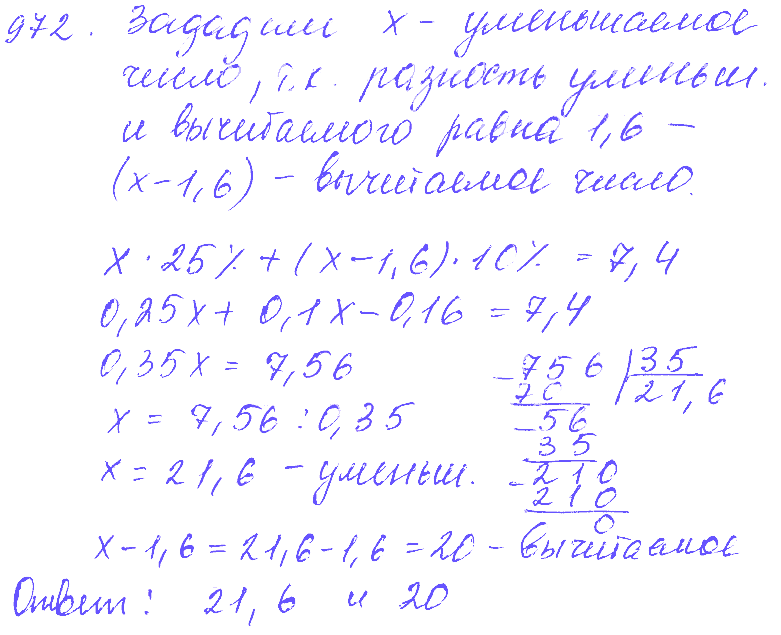 972. Зададим x - уменьшаемое
число, т.к. разность уменьш.
и вычитаемого равна 1,6 -
(x-1,6) - вычитаемое число.
x · 25% + (x-1,6) · 10% = 7,4
0,25x + 0,1x - 0,16 = 7,4
0,35x = 7,56
x = 7,56 : 0,35
x = 21,6 - уменьш.
-756 | 35
70 | 21,6
-56
35
-210
210
0
x-1,6 = 21,6-1,6 = 20 - вычитаемое
Ответ: 21,6 и 20